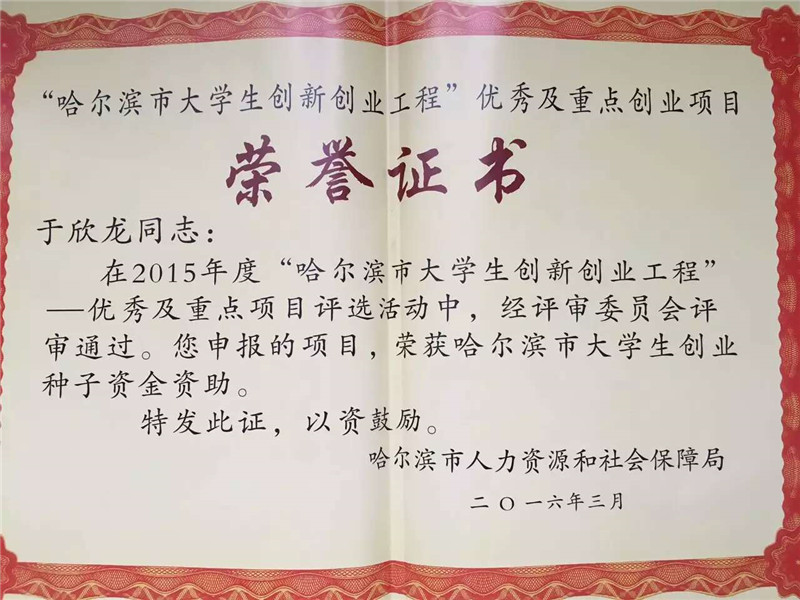 “哈尔滨市大学生创新创业工程”优秀及重点创业项目
荣誉证书
于欣龙同志：
在2015年度“哈尔滨市大学生创新创业工程”
—优秀及重点项目评选活动中，经评审委员会评
审通过。您申报的项目，荣获哈尔滨市大学生创业
种子资金资助。
特发此证，以资鼓励。
哈尔滨市人力资源和社会保障局
二〇一六年三月